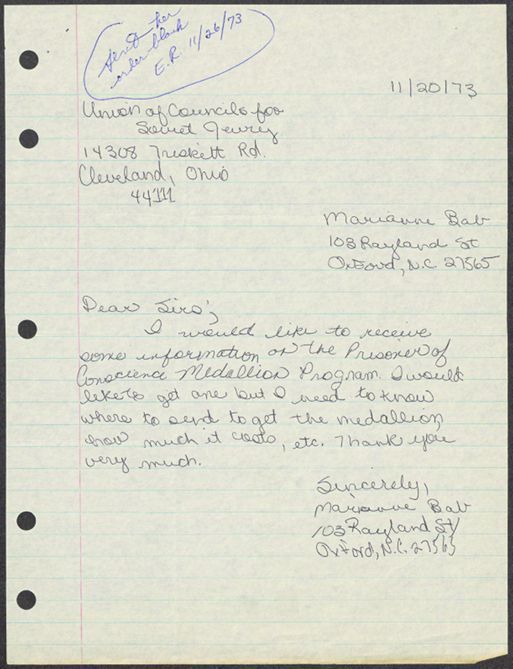 Sent her
order blank
E.R. 11/26/73
11/20/73
Union of Councils for
Soviet Jewry
14308 Triskett Rd.
Cleveland, Ohio
44111
Marianne Bab
103 Rayland St
Oxford, N.C. 27565
Dear Sirs;
I would like to receive
some information on the Prisoner of
Conscience Medallion Program. I would
like to get one but I need to know
where to send to get the medallion,
how much it costs, etc. Thank you
very much.
Sincerely,
Marianne Bab
103 Rayland St/
Oxford, N.C. 27565